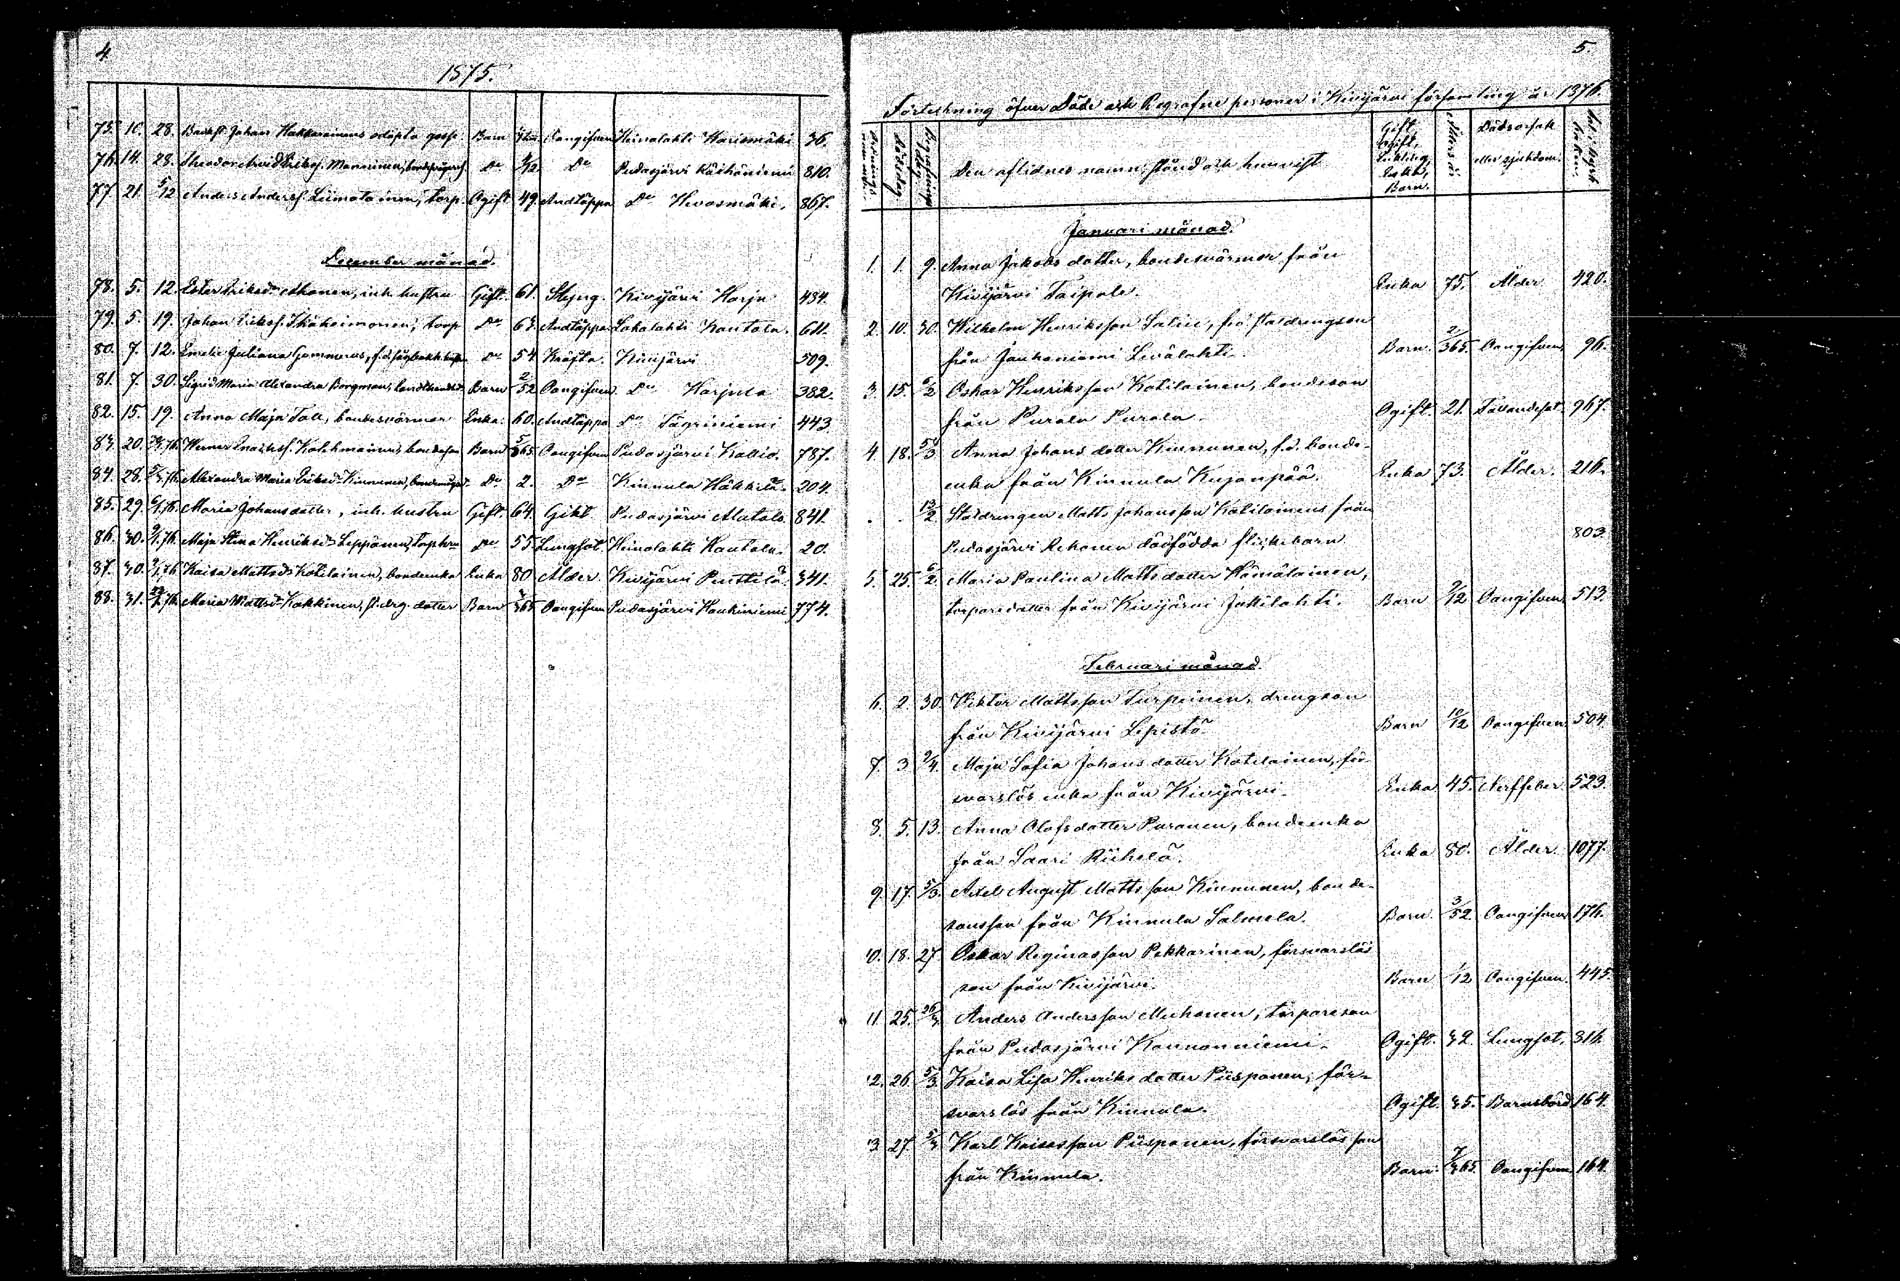 4
1875.
75. 10. 28. Johan Hakkarainens odöpta gosse. Barn Oangifven Heinolahti Harismäki 36.
76. 14. 28. Theodor Arvid Erikss. Manninen, Barn Do 1/12 Do Pudasjärvi 810.
77. 21. 5/12 Anders Anderss. Liimatainen, torp. Ogift. 49. Andtäppa Do Hevosmäki. 867.
December månad.
78. 5. 12. Ester Eriksd. Ahonen, inh. hustru Gift. 61. Kivijärvi Harju 434.
79. 5. 19. Johan Erikss. torp Do 63. Andtäppa Lokalahti Rantala. 611.
80. 7. 12. Emelie Juliana Gummerus, Do 54. Kräfta. Kivijärvi 509.
81. 7. 30. Sigrid Maria Alexandra Borgman, Barn 2/52 Oangifven Do Harjula 382.
82. 15. 19. Anna Maja Tall, bondesvärmor Enka. 60. Andtäppa Do Tägriniemi 443
83. 20. Werner bondeson Barn 5/365 Oangifven Pudasjärvi Kallio. 787.
84. 28. Alexandra Maria Eriksd. Kinnunen, Do 2. Do Kinnula Häkkilä. 204.
85. 29. 6/1 76. Maria Johansdotter, inh. hustru Gift. 64. Gikt Pudasjärvi Matala 841.
86. 30. 9/1 76. Maja Stina Henriksd. Leppänen, Do 55. Lungsot. Heinolahti Rantala. 20.
87. 30. 9/1 76. Kaisa Mattsd. Kotilainen, bondeenka Enka 80. Ålder. Kivijärvi Penttilä. 341.
88. 31. Maria Mattsd. Kokkinen, dotter Barn Oangifven Pudasjärvi Haukiniemi 774.
5.
Förteckning öfver Döde och Begrafne personer i Kivijärvi församling år 1876.
Dödsdag
Den aflidnes namn, stånd och hemvist
Gift, Ogift, Enkling, Enka, Barn.
Ålders år.
Dödsorsak eller sjukdom.
Januari månad.
1. 1. 9. Anna Jakobsdotter, bondesvärmor från
Kivijärvi Taipale. Enka 75. Ålder 420.
2. 10. 30. Wilhelm Henriksson Salin, f.d. statdrengson
från Jauhoniemi Leválahti. Barn. 2/365. Oangifven 96.
3. 15. 6/2 Oskar Henriksson Kotilainen, bondeson
från Purala Purala. Ogift. 21. Fallandesot. 967.
4. 18. 5/3 Anna Johansdotter Kinnunen, f.d. bonde-
enka från Kinnula Kujanpää. Enka 73. Ålder. 216.
13/2 Statdrengen Matts Johansson Kotilainens från
Pudasjärvi Rekonen dödfödda flickebarn 803.
5. 25. 6/2. Maria Paulina Mattsdotter Hämäläinen,
torparedotter från Kivijärvi Jokilahti. Barn 9/12 Oangifven 513.
Februari månad.
6. 2. 30. Viktor Mattsson Turpeinen, drengson
från Kivijärvi Lepistö. Barn 10/12 Oangifven. 504.
7. 3. 9/4. Maja Sofia Johansdotter Kotilainen, för-
svarslös enka från Kivijärvi. Enka 45. Nerffeber 523.
8. 5. 13. Anna Olofsdotter Puranen, bondeenka
från Saari Riihelä. Enka 80. Ålder 1077.
9. 17. 5/3. Axel August Mattsson Kinnunen, bonde-
sonsson från Kinnula Salmela. Barn. 3/52 Oangifven 176.
10. 18. 27. Oskar Reginasson Pekkarinen, försvarslös
son från Kivijärvi. Barn 1/12 Oangifven. 445.
11. 25. 26/3 Anders Andersson Muhonen, torpareson
från Pudasjärvi Kannonniemi. Ogift. 32. Lungsot. 316.
12. 26. 5/3 Kaisa Lisa Henriksdotter Piispanen, för-
svarslös från Kinnula. Ogift. 35. Barnsbörd 164.
13. 27. 5/3 Karl Kaisasson Piispanen, försvarslös son
från Kinnula. Barn. 7/365. Oangifven 164.